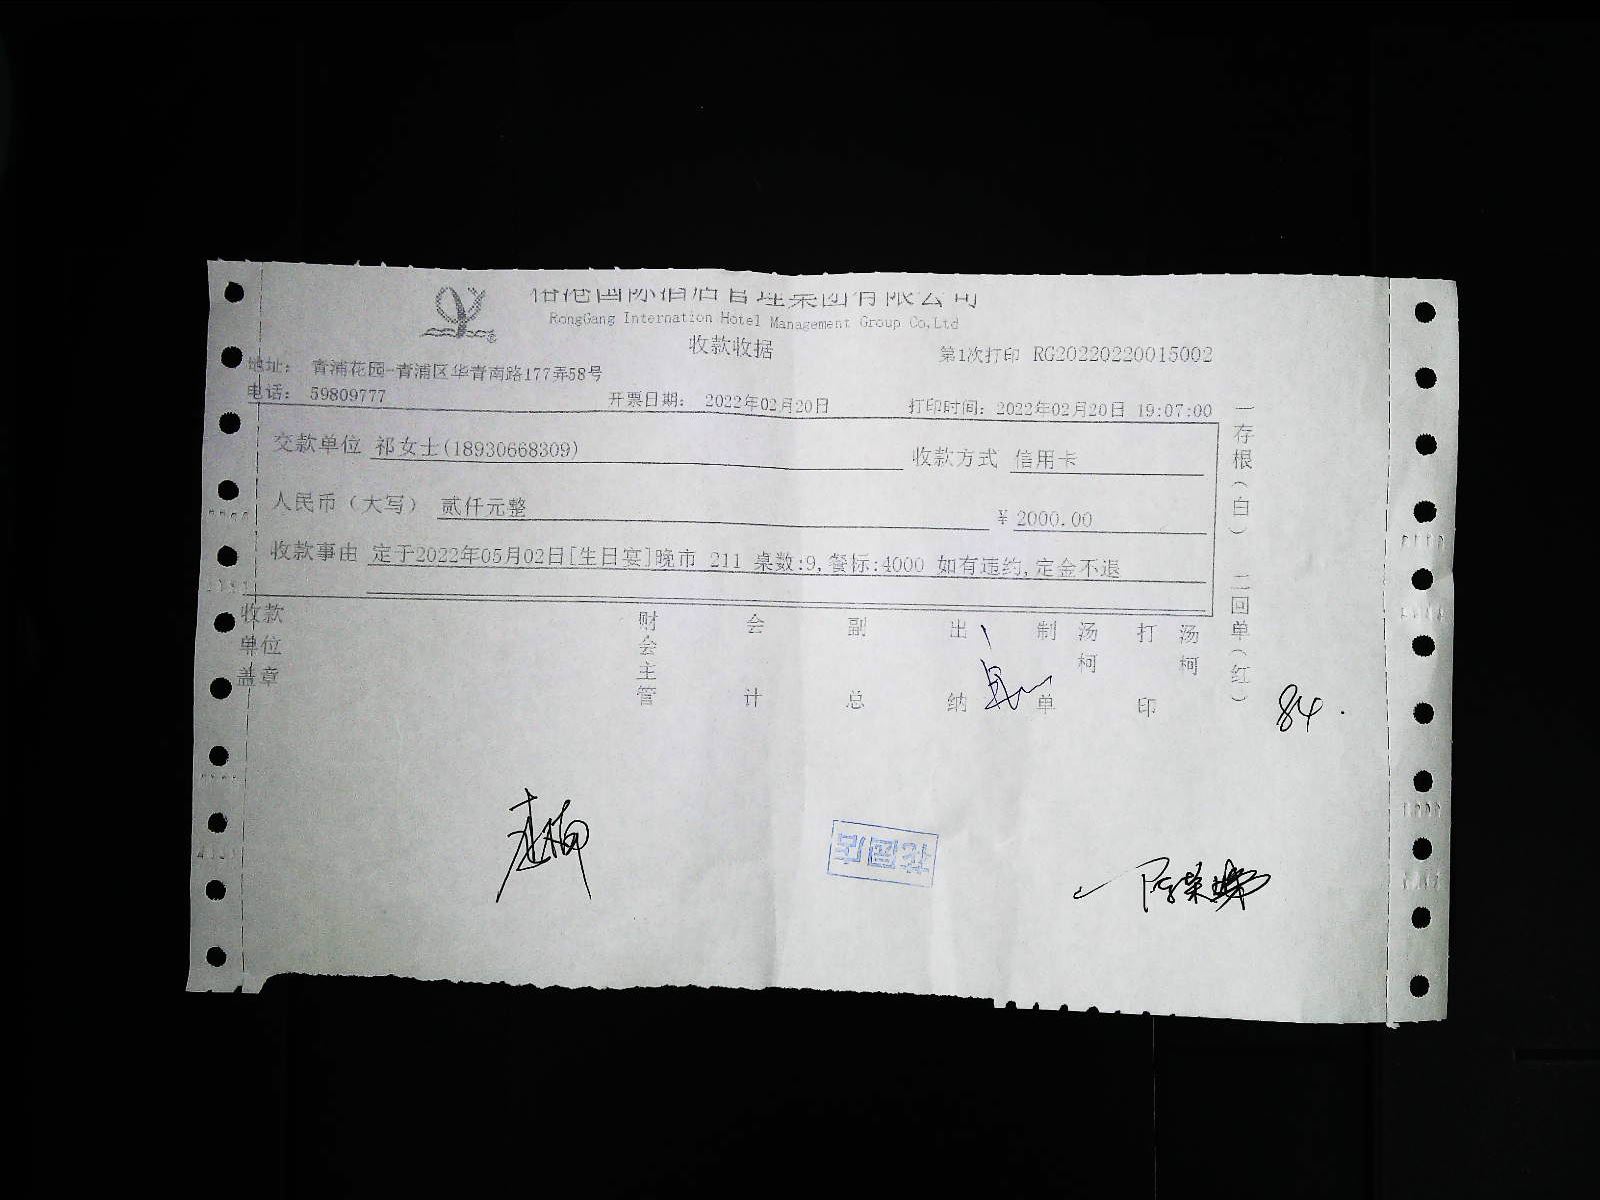 国际酒店管理集团有限公司
RongGang Internation Hotel Management Group Co,Ltd
收款收据
第1次打印 RG20220220015002
地址： 青浦花园-青浦区华青南路177弄58号
电话： 59809777
开票日期： 2022年02月20日
打印时间：2022年02月20日 19:07:00
交款单位 祁女士(18930668309)
收款方式 信用卡
人民币（大写） 贰仟元整
￥ 2000.00
收款事由 定于2022年05月02日[生日宴]晚市 211 桌数:9,餐标:4000 如有违约,定金不退
收款单位盖章
财会主管
会计
副总
出纳
制单 汤柯
打印 汤柯
一存根（白） 二回单（红）
84
花园店